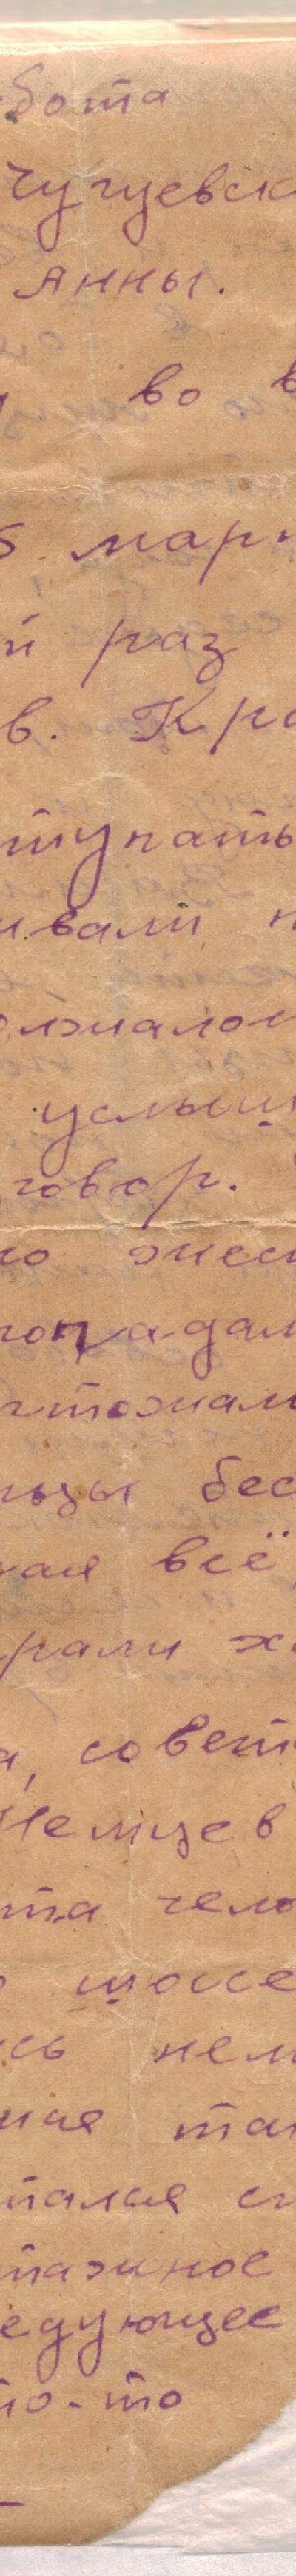 бота
Чугуевск
Анны.
во в
5 март
й раз
в. Кра
тупать
ивали н
олжалои
услыш
говор.
ло жест
попадал
чтожал
ьцы бес
ая всё
рали х
а, совет
Немцев
та чело
шоссе
сь нем
ная та
талая с
тажное
едующее
то-то